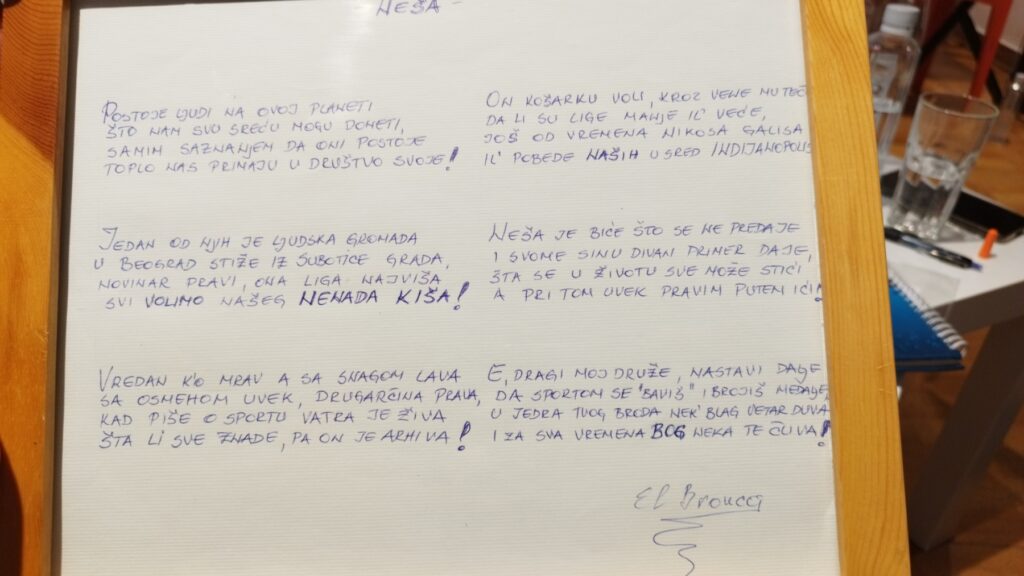 NEŠA -
POSTOJE LJUDI NA OVOJ PLANETI
ŠTO NAM SVU SREĆU MOGU DONETI,
SAMIM SAZNANJEM DA ONI POSTOJE
TOPLO NAS PRIMAJU U DRUŠTVO SVOJE!
JEDAN OD NJIH JE LJUDSKA GROMADA
U BEOGRAD STIŽE IZ SUBOTICE GRADA,
NOVINAR PRAVI, ONA LIGA NAJVIŠA
SVI VOLIMO NAŠEG NENADA KIŠA!
VREDAN K'O MRAV A SA SNAGOM LAVA
SA OSMEHOM UVEK, DRUGARČINA PRAVA,
KAD PIŠE O SPORTU VATRA JE ŽIVA
ŠTA LI SVE ZNADE, PA ON JE ARHIVA!
ON KOŠARKU VOLI, KROZ VENE MU TEČE
DA LI SU LIGE MANJE IL' VEĆE,
JOŠ OD VREMENA NIKOSA GALISA
IL' POBEDE NAŠIH U SRED INDIJANOPOLIS
NEŠA JE BIĆE ŠTO SE NE PREDAJE
I SVOME SINU DIVAN PRIMER DAJE,
ŠTA SE U ŽIVOTU SVE MOŽE STIĆI
A PRI TOM UVEK PRAVIM PUTEM IĆI!
E, DRAGI MOJ DRUŽE, NASTAVI DALJE
DA SPORTOM SE "BAVIŠ" I BROJIŠ MEDALJE,
U JEDRA TVOG BRODA NEK' BLAG VETAR DUVA
I ZA SVA VREMENA BOG NEKA TE ČUVA!
El